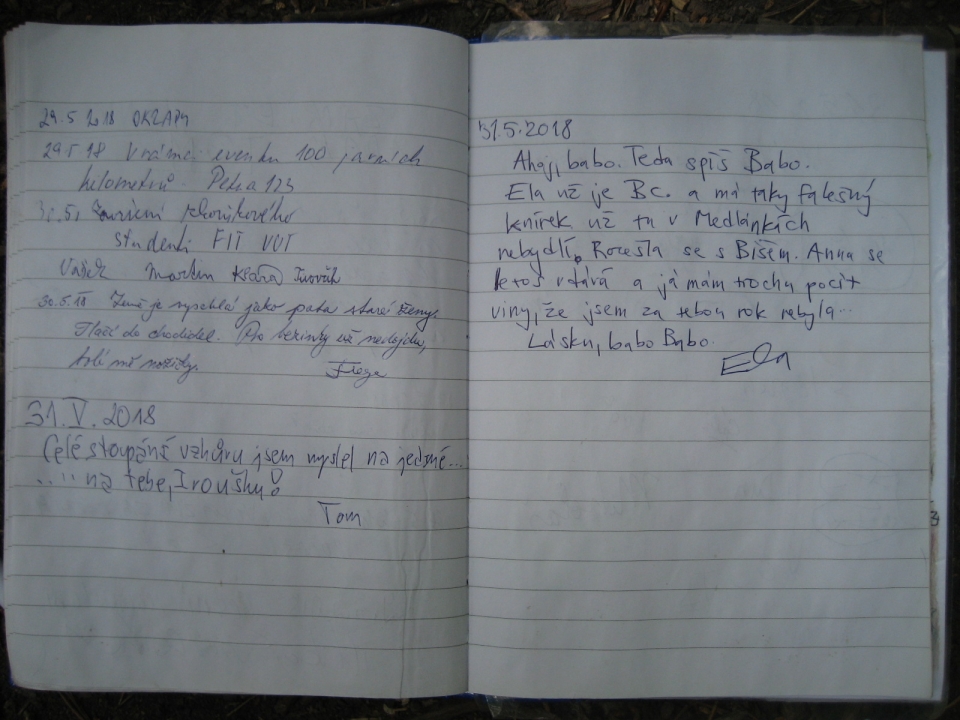 29.5 2018 OKZAPY
29.5 18 V rámci eventu 100 jarních
kilometrů. Petra 123
30.5.
studenti FIT VUT
Vašek Martin Klára
30.5.18 Země je vyprahlá jako pata staré ženy.
Tlačí do chodidel. Pro bezinky už nedojdu,
bolí mě nožičky.
31.V.2018
Celé stoupání vzhůru jsem myslel na jediné...
..... na tebe, Iroušku!
Tom
31.5.2018
Ahoj, babo. Teda spíš Babo.
Ela už je Bc. a má taky falešný
knírek už tu v Medlánkách
nebydlí. Rozešla se s Bíšem. Anna se
letos vdává a já mám trochu pocit
viny, že jsem za tebou rok nebyla...
Lásku, babo Babo.
Ela